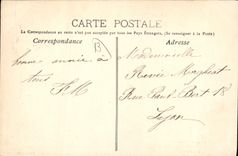 CARTE POSTALE
La Correspondance au recto n'est pas acceptée par tous les Pays Étrangers, (Se renseigner à la Poste)
Correspondance
Adresse
B
bonne année à
tous
F M
Mademoiselle
Renée
Rue Paul Bert
Lyon